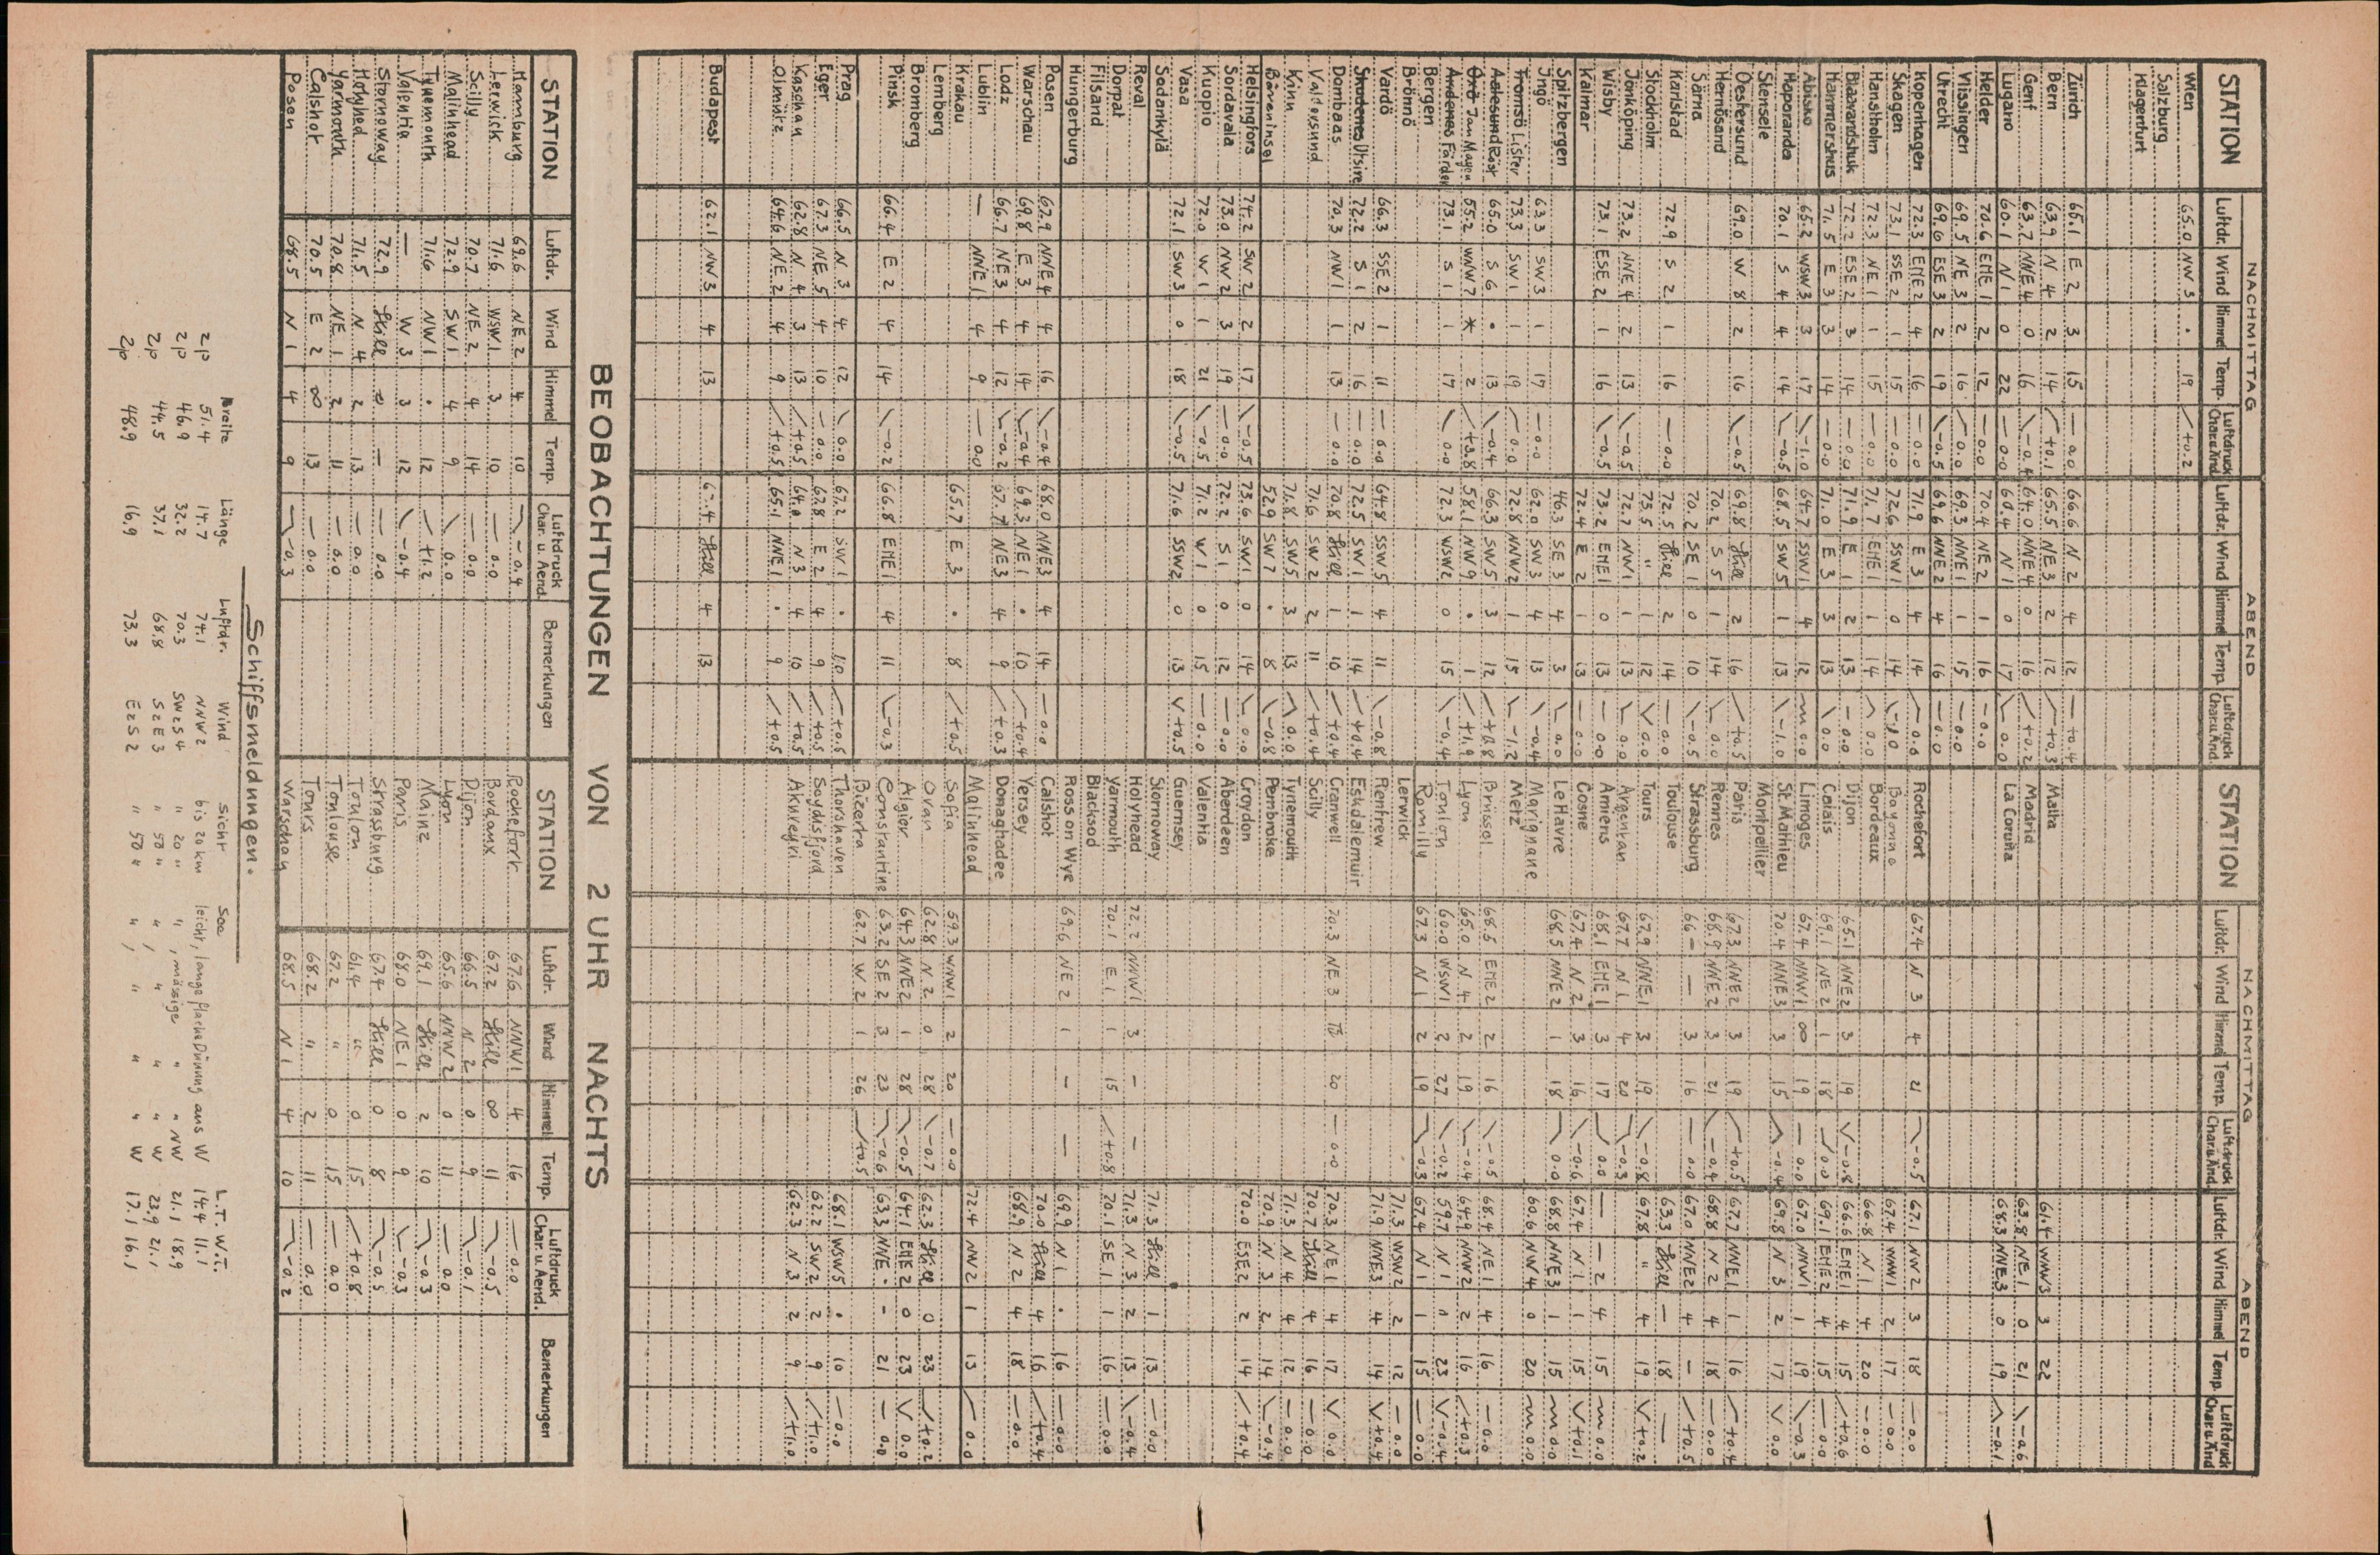 STATION NACHMITTAG ABEND
Luftdr. Wind Himmel Temp. Luftdruck Char.u.Änd Luftdr. Wind Himmel Temp. Luftdruck Char.u.Änd
Wien 65.0 NW 3 • 19 / +0.2
Salzburg
Klagenfurt
Zürich 65.1 E 2 3 15 — 0.0 66.6 N 2 4 12 — +0.4
Bern 63.9 N 4 2 14 +0.1 65.5 NE 3 2 12 +0.3
Genf 63.7 NNE 4 0 16 64.0 NNE 4 0 16 +0.2
Lugano 60.1 N 1 0 22 — 0.0 60.4 N 1 0 17 0.0
Helder 70.6 ENE 1 2 12 — 0.0 70.4 NE 2 1 16 — 0.0
Vlissingen 69.5 NE 3 2 16 0.0 69.3 NNE 1 1 15 — 0.0
Utrecht 69.6 ESE 3 2 19 \ -0.5 69.6 NNE 2 4 16 — 0.0
Kopenhagen 72.3 ENE 2 4 16 — 0.0 71.9 E 3 4 14
Skagen 73.1 SSE 2 1 15 — 0.0 72.6 SSW 1 0 14
Hanstholm 72.3 NE 1 1 15 — 0.0 71.7 ENE 1 1 14 0.0
Blaavandshuk 72.2 ESE 2 3 14 — 0.0 71.9 E 1 2 13 — 0.0
Hammershus 71.5 E 3 3 14 — 0.0 71.0 E 3 3 13 \ 0.0
Abisko 65.2 WSW 3 3 17 \ -1.0 64.7 SSW 1 4 12 0.0
Haparanda 70.1 S 4 4 14 \ -0.5 68.5 SW 5 1 13 \ -1.0
Stensele
Oestersund 69.0 W 8 2 16 \ -0.5 69.8 still 2 16 / +0.5
Hernösand 70.2 S 5 1 14 0.0
Särna 70.2 SE 1 0 10 \ -0.5
Karlstad 72.9 S 2 1 16 — 0.0 72.5 still 2 14 — 0.0
Stockholm 73.5 " 1 12 V 0.0
Jönköping 73.2 NNE 4 2 13 \ -0.5 72.7 NW 1 1 13 0.0
Wisby 73.1 ESE 2 1 16 \ -0.5 73.2 ENE 1 0 13 — 0.0
Kalmar 72.4 E 2 1 13 — 0.0
Spitzbergen 46.3 SE 3 4 3 0.0
Ingö 63.3 SW 3 1 17 — 0.0 62.0 SW 3 4 13 \ -0.4
Tromsö Lister 73.3 SW 1 1 19 0.0 72.8 NNW 2 1 15 -1.2
Aalesund Röst 65.0 S 6 • 13 \ -0.4 66.3 SW 5 3 12 / +0.8
Orö Jan Mayen 55.2 WNW 7 * 2 / +3.8 58.1 NW 9 • 1 / +1.9
Andenes Färder 73.1 S 1 1 17 \ 0.0 72.3 WSW 2 0 15 \ -0.4
Bergen
Brönnö
Vardö 66.3 SSE 2 1 11 — 0.0 64.8 SSW 5 4 11 \ -0.8
Skudenes Utsire 72.2 S 1 2 16 — 0.0 72.5 SW 1 1 14 / +0.4
Dombaas 70.3 NW 1 1 13 — 0.0 70.8 still 1 10 / +0.4
Valdersund 71.6 SW 2 2 11 / +0.4
Kinn 71.8 SW 5 3 13 0.0
Bäreninsel 52.9 SW 7 • 8 \ -0.8
Helsingfors 74.2 SW 2 2 17 \ -0.5 73.6 SW 1 0 14 0.0
Sordavala 73.0 NW 2 3 19 — 0.0 72.2 S 1 0 12 — 0.0
Kuopio 72.0 W 1 1 21 \ -0.5 71.2 W 1 0 15 — 0.0
Vasa 72.1 SW 3 0 18 \ -0.5 71.6 SSW 2 0 13 V +0.5
Sodankylä
Reval
Dorpat
Filsand
Hungerburg
Posen 67.9 NNE 4 4 16 \ -0.4 68.0 NNE 3 4 14 — 0.0
Warschau 69.8 E 3 4 14 \ -0.4 69.3 NE 1 • 10 / +0.4
Lodz 66.7 NE 3 4 12 \ -0.2 67.7 NE 3 4 9 / +0.3
Lublin — NNE 1 4 9 — 0.0
Krakau 65.7 E 3 • 8 / +0.5
Lemberg
Bromberg
Pinsk 66.4 E 2 4 14 \ -0.2 66.8 ENE 1 4 11 \ -0.3
Prag 66.5 N 3 4 12 \ 0.0 67.2 SW 1 • 10 / +0.5
Eger 67.3 NE 5 4 10 — 0.0 67.8 E 2 4 9 / +0.5
Kaschan 62.8 N 4 3 13 / +0.5 64.0 N 3 4 10 / +0.5
Olmütz 64.6 NE 2 4 9 / +0.5 65.1 NNE 1 • 9 / +0.5
Budapest 62.1 NW 3 4 13 63.4 still 4 13
STATION NACHMITTAG ABEND
Luftdr. Wind Himmel Temp. Luftdruck Char.u.Änd. Luftdr. Wind Himmel Temp. Luftdruck Char.u.Änd
Malta 61.4 WNW 3 3 22
Madrid 63.8 NE 1 0 21 \ -0.6
La Coruña 68.3 NNE 3 0 19 -0.1
Rochefort 67.4 N 3 4 21 -0.5 67.1 NW 2 3 18 — 0.0
Bayonne 67.4 WNW 1 2 17 — 0.0
Bordeaux 66.8 N 1 4 20 — 0.0
Dijon 65.1 NNE 2 3 19 V -0.8 66.6 ENE 1 4 15 / +0.6
Calais 69.1 NE 2 1 18 / 0.0 69.1 ENE 2 4 15 — 0.0
Limoges 67.4 NNW 1 ∞ 19 — 0.0 67.0 NNW 1 1 19 \ -0.3
St. Mathieu 70.4 NNE 3 3 15 -0.4 69.8 N 3 2 17 V 0.0
Montpellier
Paris 67.3 NNE 2 3 19 / +0.5 67.7 NNE 1 1 16 / +0.4
Rennes 68.9 NNE 2 3 21 \ -0.4 68.8 N 2 4 18 — 0.0
Strassburg 66 — — 3 16 — 0.0 67.0 NNE 2 4 — / +0.5
Toulouse 63.3 still — 18 —
Tours 67.9 NNE 1 3 19 \ -0.8 67.8 " 4 19 V +0.2
Argentan 67.7 N 1 4 20 -0.3
Amiens 68.1 ENE 1 3 17 0.0 — — 2 4 15 0.0
Cosne 67.4 N 2 3 16 \ -0.6 67.4 N 1 1 15 V +0.1
Le Havre 68.5 NNE 2 1 18 0.0 68.8 NNE 3 1 15 0.0
Marignane 60.6 NW 4 0 20 0.0
Metz
Brüssel 68.5 ENE 2 2 16 \ -0.5 68.4 NE 1 4 16 — 0.0
Lyon 65.0 N 4 2 19 \ -0.4 64.9 NNW 2 2 16 / +0.3
Toulon 60.0 WSW 1 2 27 \ -0.2 59.7 N 1 0 23 V -0.4
Romilly 67.3 N 1 2 19 -0.3 67.4 N 1 1 15 — 0.0
Lerwick 71.3 WSW 2 2 12 — 0.0
Renfrew 71.9 NNE 3 4 14 V +0.4
Eskdalemuir
Cranwell 70.3 NE 3 20 — 0.0 70.3 NE 1 4 17 V 0.0
Scilly 70.7 still 4 16 — 0.0
Tynemouth 71.3 N 4 4 12 — 0.0
Pembroke 70.9 N 3 2 14 \ -0.4
Croydon 70.0 ESE 2 2 14 / +0.4
Aberdeen
Valentia
Guernsey
Stornoway 71.3 still 1 13 — 0.0
Holyhead 72.2 NNW 1 3 — — 71.3 N 3 2 13 \ -0.4
Yarmouth 70.1 E 1 1 15 / +0.8 70.1 SE 1 1 16 — 0.0
Blacksod
Ross on Wye 69.6 NE 2 1 — — 69.9 N 1 • 16 — 0.0
Calshot 70.0 still 4 16 / +0.4
Yersey 68.9 N 2 4 18 — 0.0
Donaghadee
Malinhead 72.4 NW 2 1 13 / 0.0
Sofia 59.3 WNW 1 2 20 — 0.0
Oran 62.8 N 2 0 28 \ -0.7 62.3 still 0 23 / +0.2
Algier 64.3 NNE 2 1 28 \ -0.5 64.1 ENE 2 0 23 V 0.0
Constantine 63.2 SE 2 3 23 -0.6 63.3 NNE • - 21 — 0.0
Bizertra 62.7 W 2 1 26 / +0.5
Thorshaven 68.1 WSW 5 • 10 — 0.0
Seydisfjord 62.2 SW 2 2 9 / +1.0
Akureyri 62.3 N 3 2 9 / +1.0
BEOBACHTUNGEN VON 2 UHR NACHTS
STATION Luftdr. Wind Himmel Temp. Luftdruck Char. u. Aend. Bemerkungen STATION Luftdr. Wind Himmel Temp. Luftdruck Char. u. Aend. Bemerkungen
Hamburg 69.6 NE 2 4 10 -0.4 Rochefort 67.6 NNW 1 4 16 — 0.0
Lerwick 71.6 WSW 1 3 10 — 0.0 Bordaux 67.2 still ∞ 11 -0.5
Scilly 70.7 NE 2 4 14 — 0.0 Dijon 66.5 N 2 0 9 -0.1
Malinhead 72.9 SW 1 4 9 \ 0.0 Lyon 65.6 NNW 2 0 11 — 0.0
Tynemonth 71.6 NW 1 • 12 / +1.2 Mainz 69.1 still 2 10 -0.3
Valentia — W 3 3 12 \ -0.4 Paris 68.0 NE 1 0 9 \ -0.3
Stornoway 72.9 still — — 0.0 Strassburg 67.4 still 0 8 -0.5
Holyhead 71.5 N 4 2 13 — 0.0 Toulon 61.4 " 0 15 / +0.8
Yarmouth 70.8 NE 1 2 11 — 0.0 Toulouse 67.2 " 0 15 — 0.0
Calshot 70.5 E 2 ∞ 13 — 0.0 Tours 68.2 " 2 11 — 0.0
Posen 68.5 N 1 4 9 -0.3 Warschau 68.5 N 1 4 10 -0.2
Schiffsmeldungen.
Breite Länge Luftdr. Wind Sicht See L.T. W.T.
2p 51.4 14.7 74.1 NNW 2 bis 20 km leicht, lange flache Dünung aus W 14.4 11.1
2p 46.9 32.2 70.3 SWzS 4 " 20 " " , mässige " " NW 21.1 18.9
2p 44.5 37.1 68.8 SzE 3 " 50 " " , " " " W 23.9 21.1
2p 48.9 16.9 73.3 EzS 2 " 50 " " , " " " W 17.1 16.1